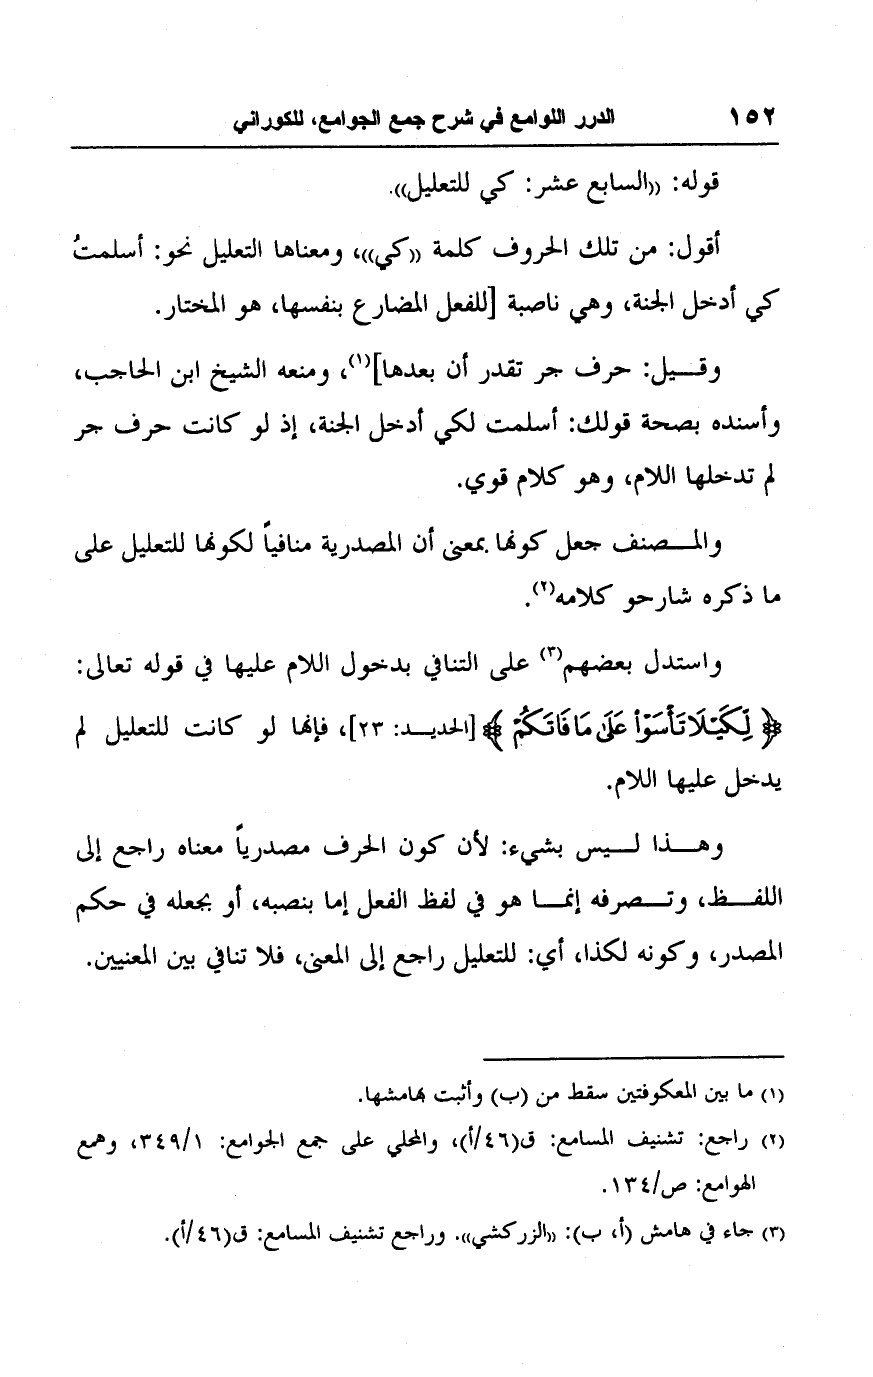 ١٥٢ الدرر اللوامع في شرح جمع الجوامع، للكوراني
قوله: ((السابع عشر: كي للتعليل)).
أقول: من تلك الحروف كلمة ((كي))، ومعناها التعليل نحو: أسلمتُ
كي أدخل الجنة، وهي ناصبة [للفعل المضارع بنفسها، هو المختار.
وقـــيل: حرف جر تقدر أن بعدها](١)، ومنعه الشيخ ابن الحاجب،
وأسنده بصحة قولك: أسلمت لكي أدخل الجنة، إذ لو كانت حرف جر
لم تدخلها اللام، وهو كلام قوي.
والمـــصنف جعل كونها بمعنى أن المصدرية منافياً لكونها للتعليل على
ما ذكره شارحو كلامه(٢).
واستدل بعضهم(٣) على التنافي بدخول اللام عليها في قوله تعالى:
﴿ لِّكَيْلَا تَأْسَوْا عَلَىٰ مَا فَاتَكُمْ ﴾ [الحديـــد: ٢٣]، فإنها لو كانت للتعليل لم
يدخل عليها اللام.
وهـــذا لـــيس بشيء: لأن كون الحرف مصدرياً معناه راجع إلى
اللفـــظ، وتـــصرفه إنمـــا هو في لفظ الفعل إما بنصبه، أو بجعله في حكم
المصدر، وكونه لكذا، أي: للتعليل راجع إلى المعنى، فلا تنافي بين المعنيين.
(١) ما بين المعكوفتين سقط من (ب) وأثبت بهامشها.
(٢) راجع: تشنيف المسامع: ق(٤٦/أ)، والمحلي على جمع الجوامع: ٣٤٩/١، وهمع
الهوامع: ص/١٣٤.
(٣) جاء في هامش (أ، ب): ((الزركشي)). وراجع تشنيف المسامع: ق(٤٦/أ).